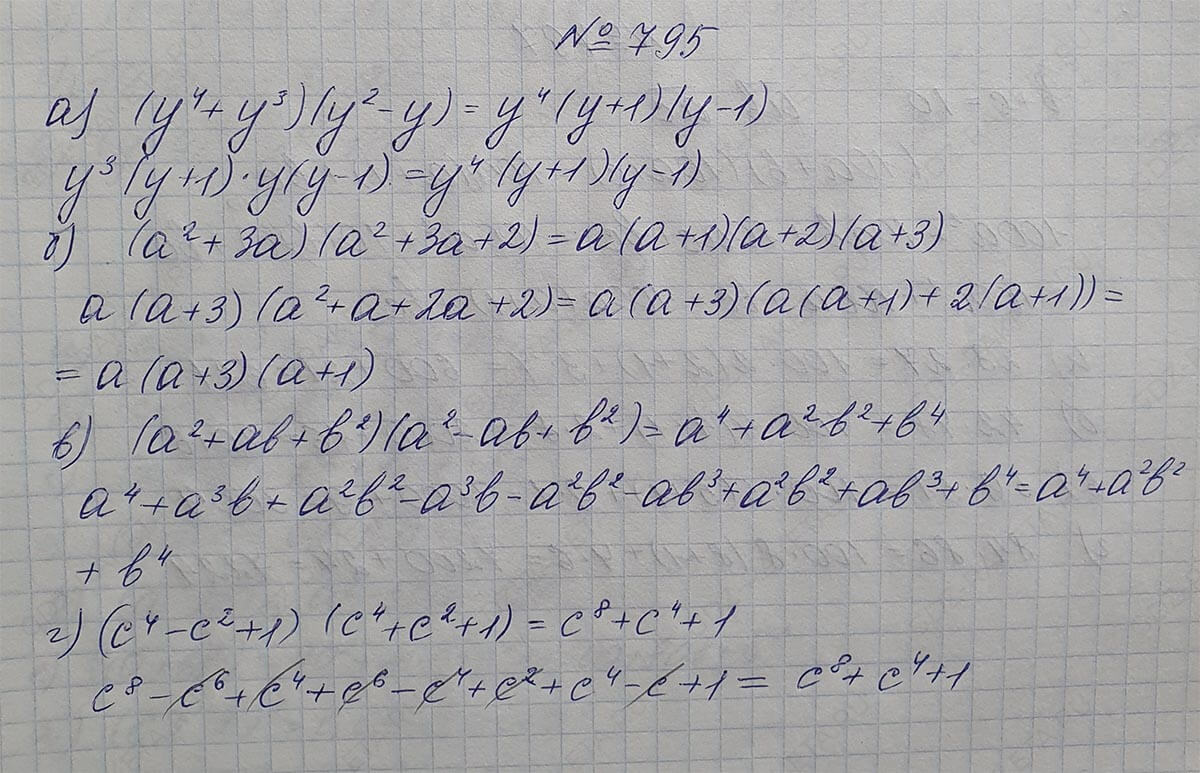 № 795
а) (y⁴ + y³)(y² - y) = y⁴ (y+1)(y-1)
y³ (y+1) · y(y-1) = y⁴ (y+1)(y-1)
б) (a² + 3a)(a² + 3a + 2) = a (a+1)(a+2)(a+3)
a (a+3) (a² + a + 2a + 2) = a (a+3) (a(a+1) + 2(a+1)) =
= a (a+3) (a+1)
в) (a² + ab + b²)(a² - ab + b²) = a⁴ + a²b² + b⁴
a⁴ + a³b + a²b² - a³b - a²b² - ab³ + a²b² + ab³ + b⁴ = a⁴ + a²b²
+ b⁴
г) (c⁴ - c² + 1) (c⁴ + c² + 1) = c⁸ + c⁴ + 1
c⁸ - c⁶ + c⁴ + c⁶ - c⁴ + c² + c⁴ - c + 1 = c⁸ + c⁴ + 1